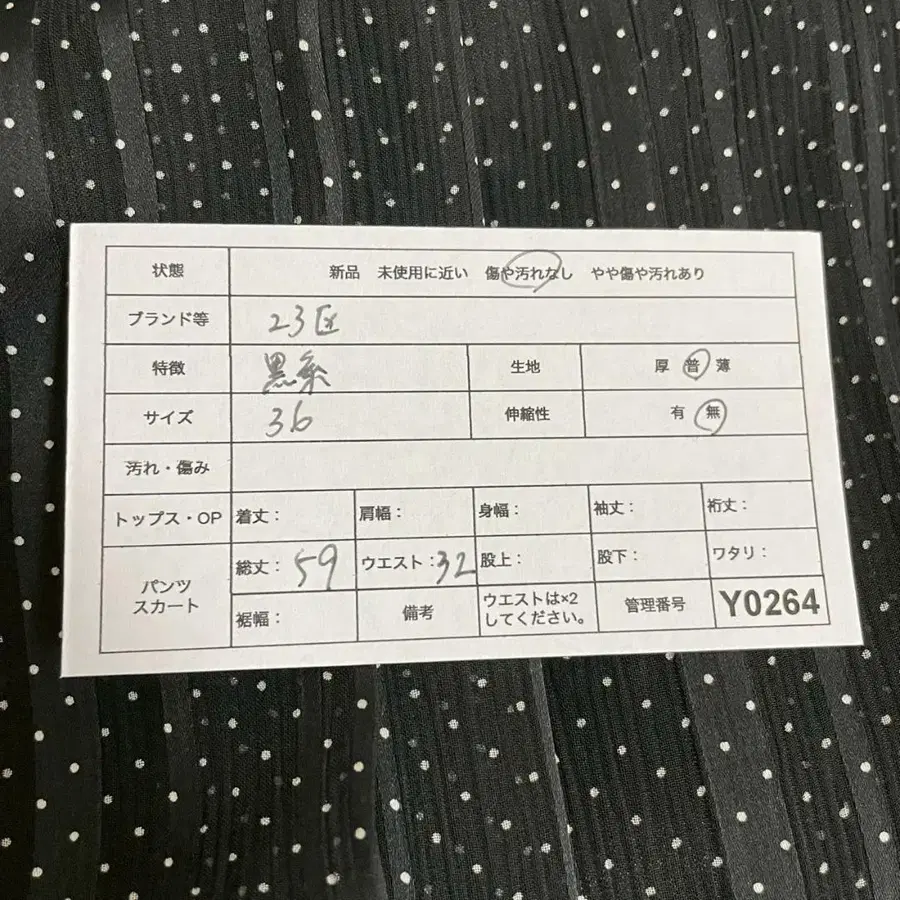 状態 新品 未使用に近い 傷や汚れなし やや傷や汚れあり
ブランド等 23区
特徴 黒系 生地 厚 普 薄
サイズ 36 伸縮性 有 無
汚れ・傷み
トップス・OP 着丈: 肩幅: 身幅: 袖丈: 裄丈:
パンツ
スカート
総丈:59 ウエスト:32 股上: 股下: ワタリ:
裾幅: 備考 ウエストは×2
してください。
管理番号 Y0264